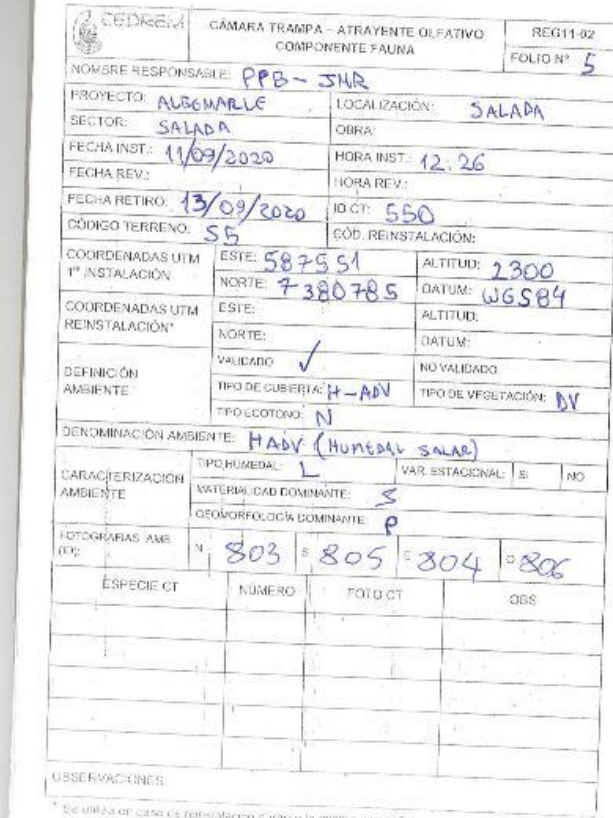 CEDREM
CÁMARA TRAMPA – ATRAYENTE OLFATIVO
COMPONENTE FAUNA
REG11-02
FOLIO N° 5
NOMBRE RESPONSABLE: PPB - JMR
PROYECTO: ALBEMARLE
LOCALIZACIÓN: SALADA
SECTOR: SALADA
OBRA:
FECHA INST.: 11/09/2020
HORA INST.: 12.26
FECHA REV.:
HORA REV.:
FECHA RETIRO: 13/09/2020
ID CT: 550
CÓDIGO TERRENO: S5
CÓD. REINSTALACIÓN:
COORDENADAS UTM
1° INSTALACIÓN
ESTE: 587551
ALTITUD: 2300
NORTE: 7380785
DATUM: WGS84
COORDENADAS UTM
REINSTALACIÓN*
ESTE:
ALTITUD:
NORTE:
DATUM:
DEFINICIÓN
AMBIENTE
VALIDADO ✓
NO VALIDADO
TIPO DE CUBIERTA: H-ADV
TIPO DE VEGETACIÓN: DV
TIPO ECOTONO: N
DENOMINACIÓN AMBIENTE: HADV (HUMEDAL SALAR)
CARACTERIZACIÓN
AMBIENTE
TIPO HUMEDAL: L
VAR. ESTACIONAL: SI NO
MATERIALIDAD DOMINANTE: S
GEOMORFOLOGÍA DOMINANTE: P
FOTOGRAFÍAS AMB
(ID):
N 803 S 805 E 804 O 806
ESPECIE CT NÚMERO FOTO CT OBS
OBSERVACIONES:
* Se utiliza en caso de reinstalación